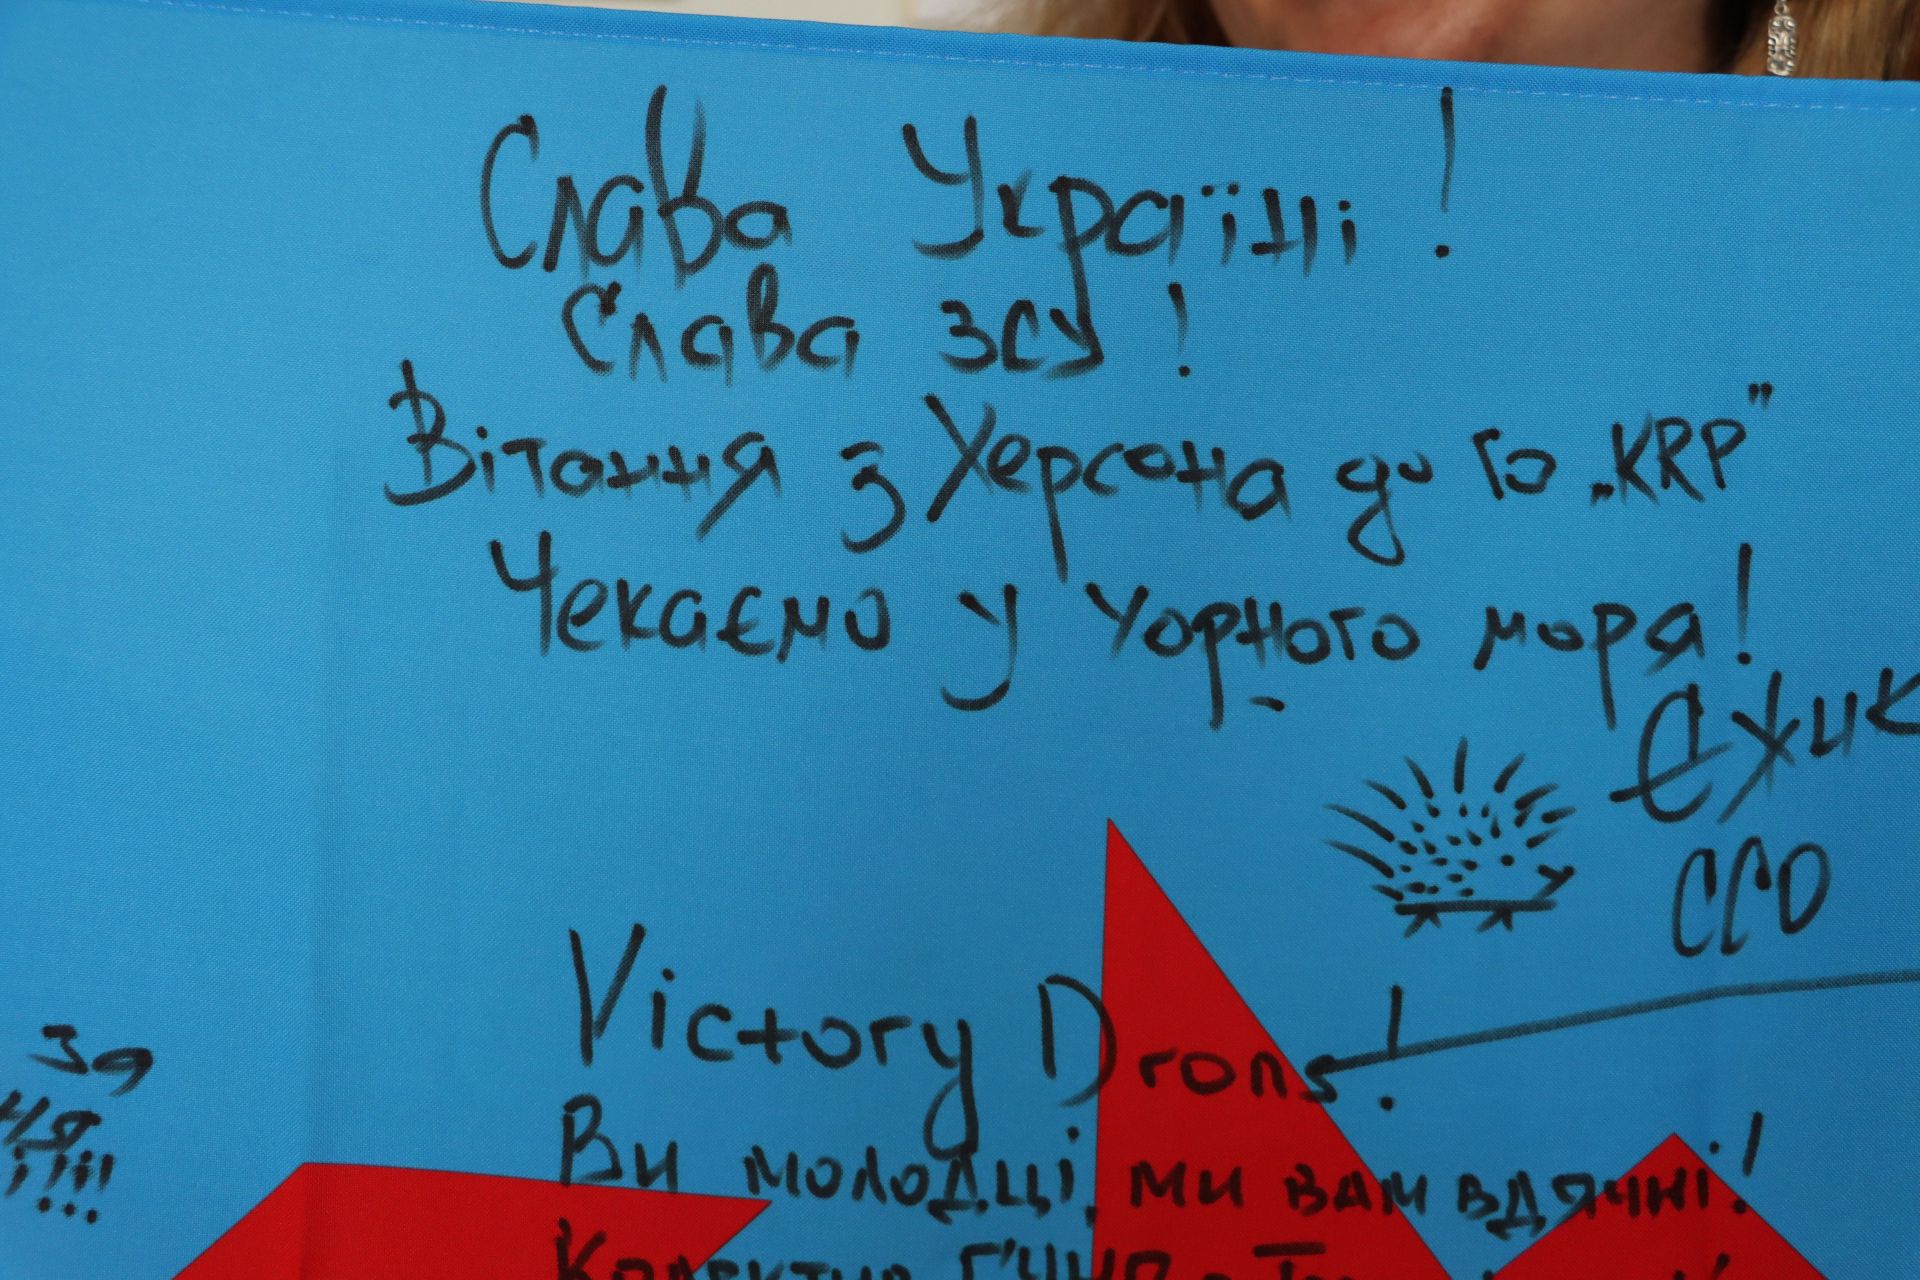 Слава Україні!
Слава ЗСУ!
Вітання з Херсона до ГО „KRP"
Чекаємо у Чорного моря!
Єжик
ССО
Victory Drons!
Ви молодці, ми вам вдячні!
за
ня
!!!!
Колектив